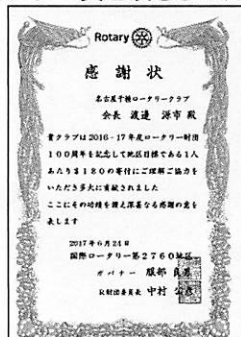 Rotary
感謝状
名古屋千種ロータリークラブ
会長 渡邉 源市 殿
貴クラブは2016-17年度ロータリー財団
100周年を記念して地区目標である1人
あたり$180の寄付にご理解ご協力を
いただき多大に貢献されました
ここにその功績を讃え深甚なる感謝の意を
表します
2017年6月24日
国際ロータリー第2760地区
ガバナー 服部 良男
R財団委員長 中村 公彦